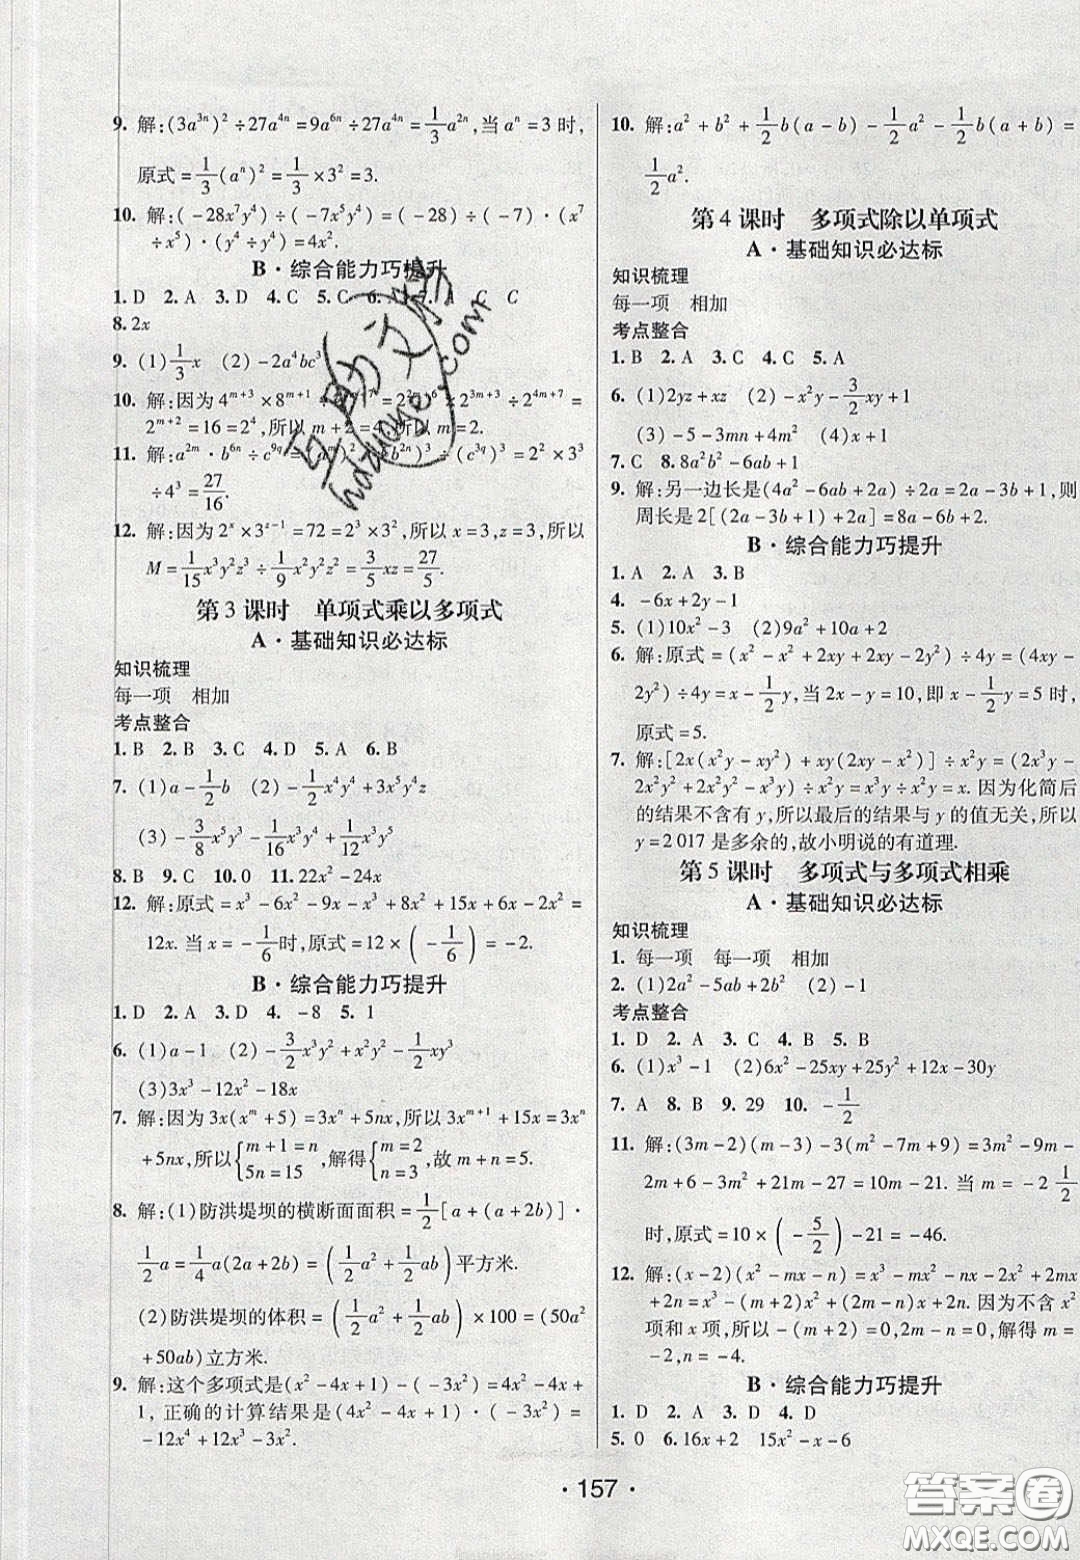 9. 解:(3a³ⁿ)²÷27a⁴ⁿ=9a⁶ⁿ÷27a⁴ⁿ=1/3a²ⁿ,当aⁿ=3时,
原式=1/3(aⁿ)²=1/3×3²=3.
10. 解:(-28x⁷y⁴)÷(-7x⁵y⁴)=(-28)÷(-7)·(x⁷
÷x⁵)·(y⁴÷y⁴)=4x².
B·综合能力巧提升
1. D 2. A 3. D 4. C 5. C 6. A 7. A C C
8. 2x
9. (1)1/3x (2)-2a⁴bc³
10. 解:因为4^(m+3)×8^(m+1)÷2^(4m+7)=2^(2m+6)×2^(3m+3)÷2^(4m+7)=
2^(m+2)=16=2⁴,所以m+2=4,所以m=2.
11. 解:a^(2m)·b^(6n)÷c^(9q)=(a^m)²·(b^(2n))³÷(c^(3q))³=2²×3³
÷4³=27/16.
12. 解:因为2^x×3^(z-1)=72=2³×3²,所以x=3,z=3,所以
M=1/15x³y²z³÷1/9x²y²z²=3/5xz=27/5.
第3课时 单项式乘以多项式
A·基础知识必达标
知识梳理
每一项 相加
考点整合
1. B 2. B 3. C 4. D 5. A 6. B
7. (1)a-1/2b (2)-2x⁴y⁴+3x⁵y⁴z
(3)-3/8x⁵y³-1/16x³y⁴+1/12x³y³
8. B 9. C 10. 0 11. 22x²-24x
12. 解:原式=x³-6x²-9x-x³+8x²+15x+6x-2x²=
12x. 当x=-1/6时,原式=12×(-1/6)=-2.
B·综合能力巧提升
1. D 2. A 3. D 4. -8 5. 1
6. (1)a-1 (2)-3/2x³y²+x²y²-1/2xy³
(3)3x³-12x²-18x
7. 解:因为3x(x^m+5)=3xⁿ+5nx,所以3x^(m+1)+15x=3xⁿ
+5nx,所以{m+1=n 5n=15,解得{m=2 n=3,故m+n=5.
8. 解:(1)防洪堤坝的横断面面积=1/2[a+(a+2b)]·
1/2a=1/4a(2a+2b)=(1/2a²+1/2ab)平方米.
(2)防洪堤坝的体积=(1/2a²+1/2ab)×100=(50a²
+50ab)立方米.
9. 解:这个多项式是(x²-4x+1)-(-3x²)=4x²-4x+
1,正确的计算结果是(4x²-4x+1)·(-3x²)=
-12x⁴+12x³-3x².
10. 解:a²+b²+1/2b(a-b)-1/2a²-1/2b(a+b)=
1/2a².
第4课时 多项式除以单项式
A·基础知识必达标
知识梳理
每一项 相加
考点整合
1. B 2. A 3. C 4. C 5. A
6. (1)2yz+xz (2)-x²y-3/2xy+1
(3)-5-3mn+4m² (4)x+1
7. C 8. 8a²b²-6ab+1
9. 解:另一边长是(4a²-6ab+2a)÷2a=2a-3b+1,则
周长是2[(2a-3b+1)+2a]=8a-6b+2.
B·综合能力巧提升
1. A 2. A 3. B
4. -6x+2y-1
5. (1)10x²-3 (2)9a²+10a+2
6. 解:原式=(x²-x²+2xy+2xy-2y²)÷4y=(4xy-
2y²)÷4y=x-1/2y,当2x-y=10,即x-1/2y=5时,
原式=5.
7. 解:[2x(x²y-xy²)+xy(2xy-x²)]÷x²y=(2x³y-
2x²y²+2x²y²-x³y)÷x²y=x³y÷x²y=x. 因为化简后
的结果不含有y,所以最后的结果与y的值无关,所以
y=2 017是多余的,故小明说的有道理.
第5课时 多项式与多项式相乘
A·基础知识必达标
知识梳理
1. 每一项 每一项 相加
2. (1)2a²-5ab+2b² (2)-1
考点整合
1. D 2. A 3. C 4. B 5. B
6. (1)x³-1 (2)6x²-25xy+25y²+12x-30y
7. A 8. B 9. 29 10. -1/2
11. 解:(3m-2)(m-3)-3(m²-7m+9)=3m²-9m-
2m+6-3m²+21m-27=10m-21. 当m=-2 1/2
时,原式=10×(-5/2)-21=-46.
12. 解:(x-2)(x²-mx-n)=x³-mx²-nx-2x²+2mx
+2n=x³-(m+2)x²+(2m-n)x+2n. 因为不含x²
项和x项,所以-(m+2)=0,2m-n=0,解得m=
-2,n=-4.
B·综合能力巧提升
1. D 2. A 3. D 4. D
5. 0 6. 16x+2 15x²-x-6
·157·
互助文将
hdzuoye.com
答案圈
MXQE.COM